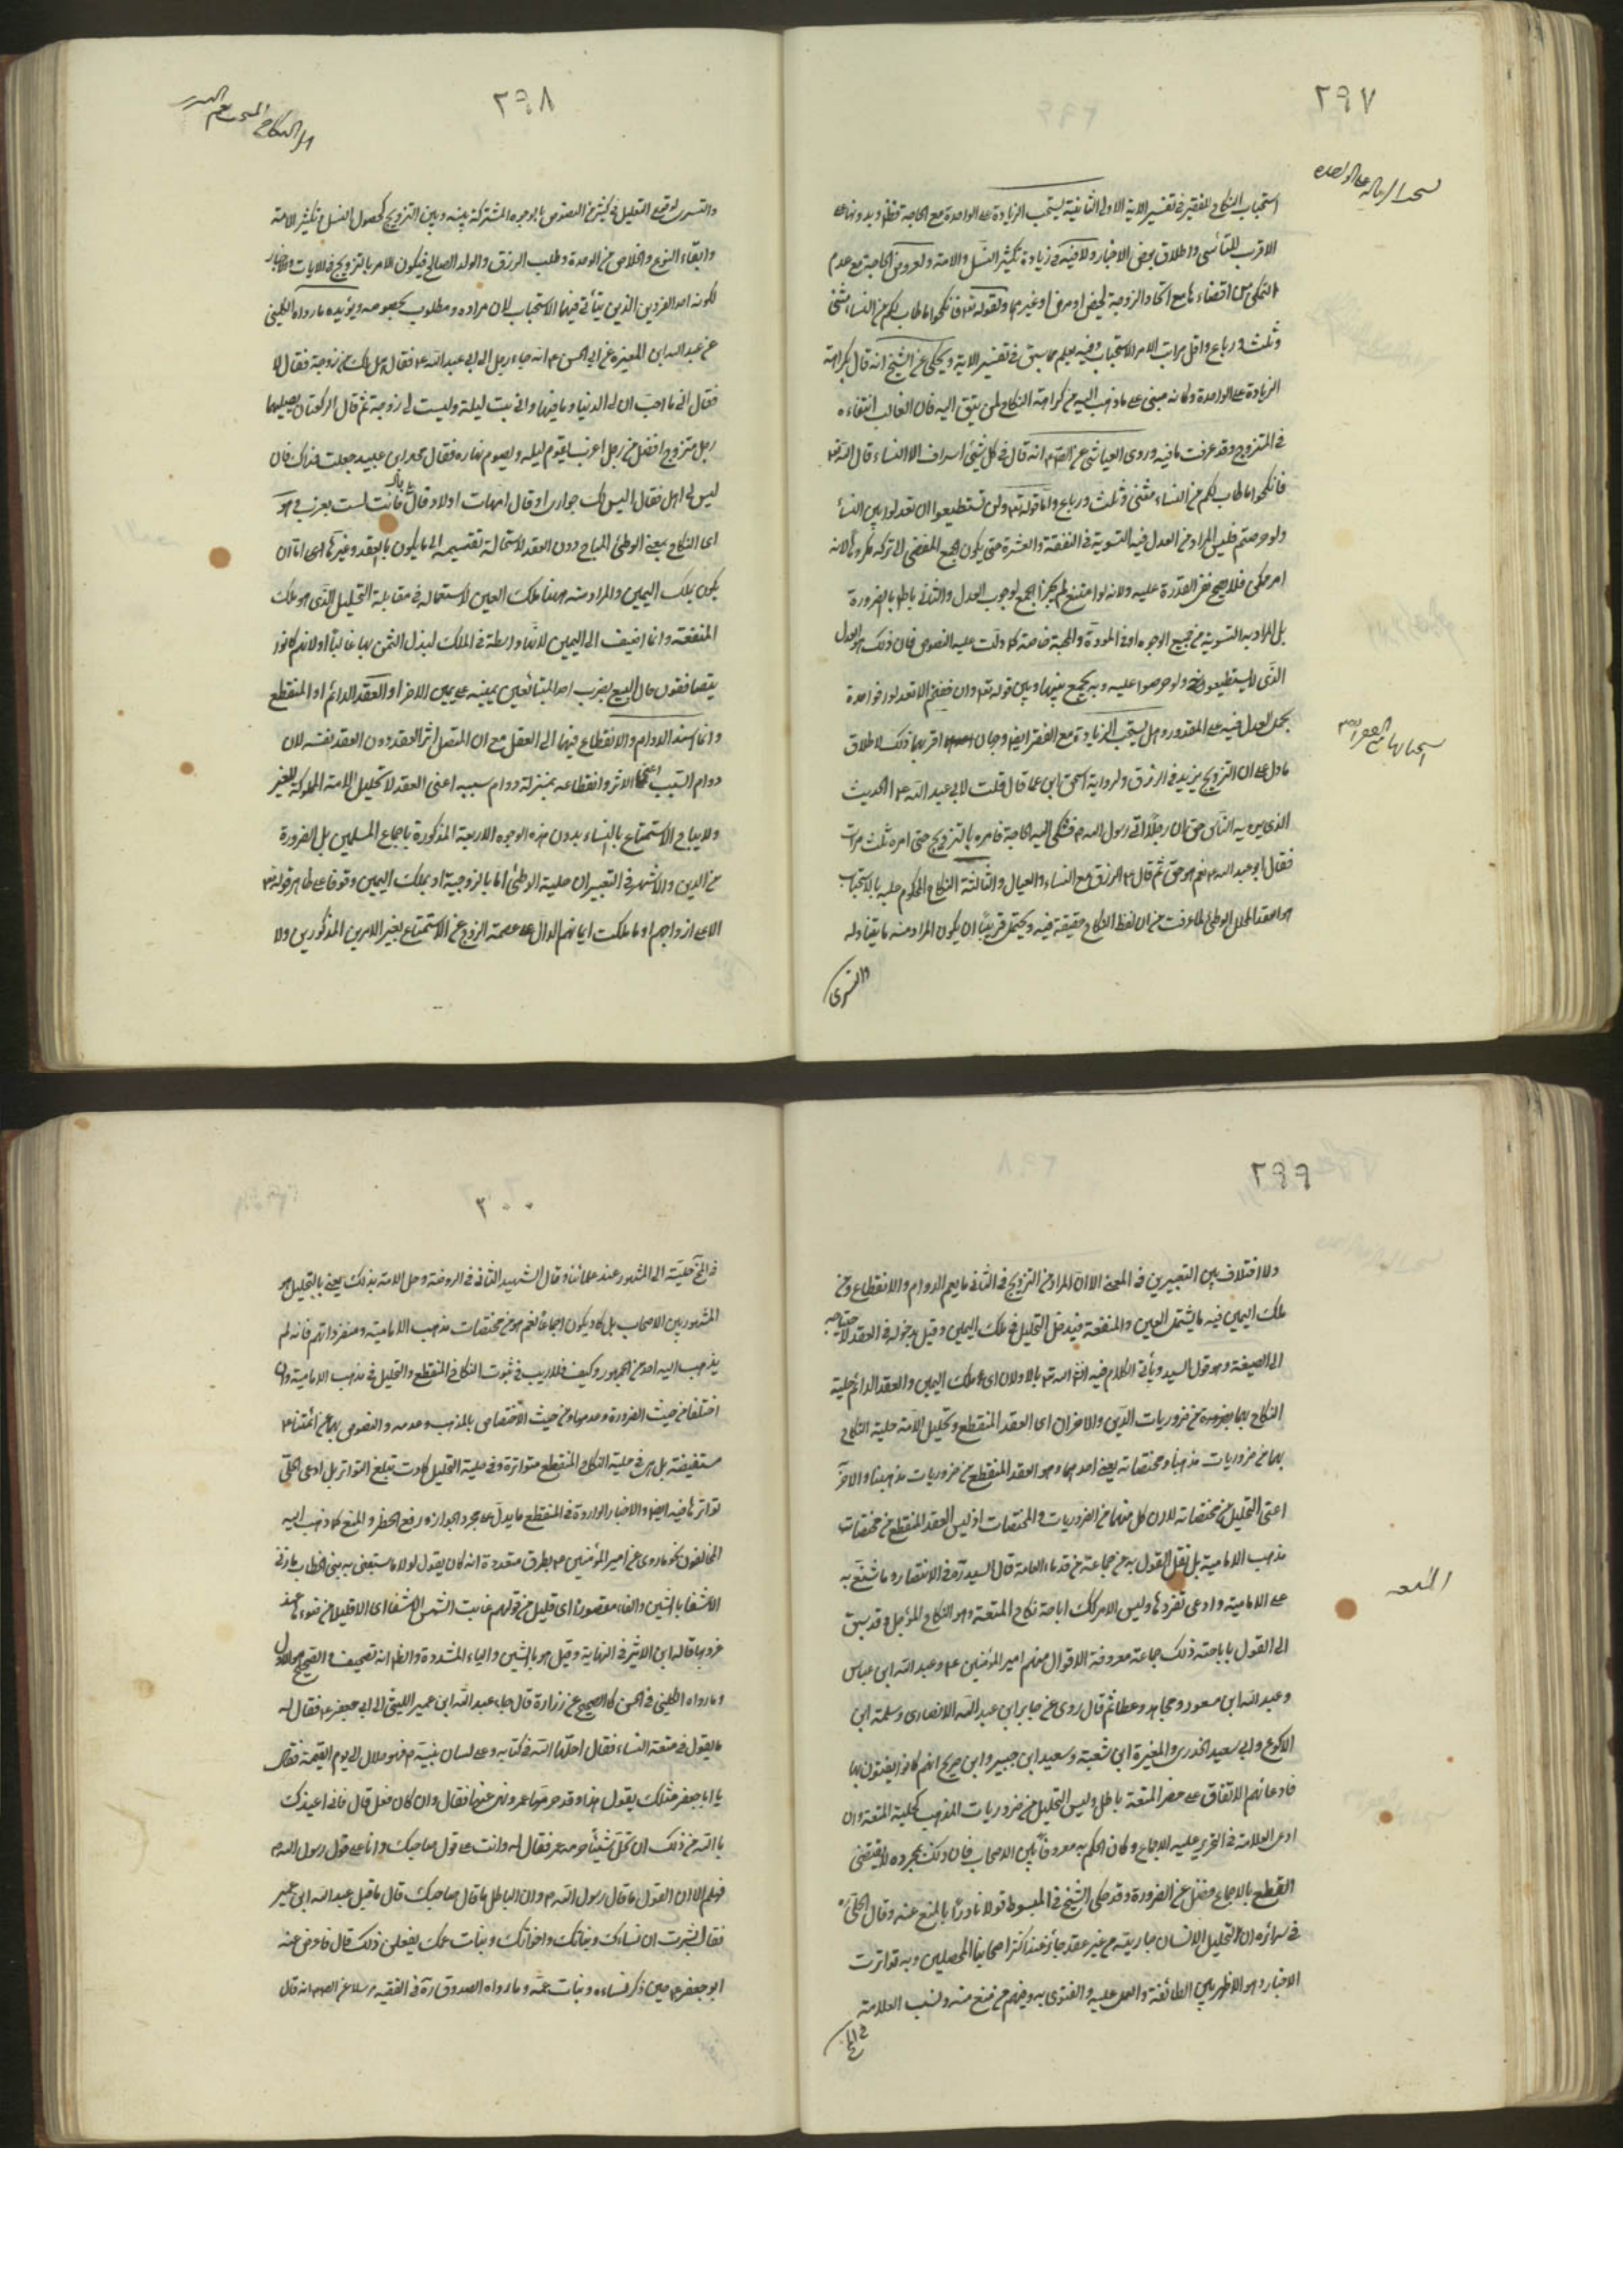 ٢٩٧
استحباب النكاح للفقير في تفسير الاية الاولى الثانية يستحب الزيادة على الواحدة مع الحاجة قطعا وبدونها على
الاقرب للتأسي واطلاق بعض الاخبار ولا فيه في زيادة تكثير النسل والامة ولعروض الحاجة مع عدم
التمكن من اقضاءها مع اتحاد الزوجة لحيض او مرض او غيرهما ولقوله تع فانكحوا ما طاب لكم من النساء مثنى
وثلث ورباع واقل مراتب الامر الاستحباب وفيه يعلم مما سبق في تفسير الاية ويحكى عن الشيخ انه قال بكراهة
الزيادة على الواحدة وكانه مبنى على ما ذهب اليه من كراهة النكاح لمن يتق اليه فان الغالب انتفاءه
في المتزوج وقد عرفت ما فيه وروى العياشي عن الصم انه قال في كل شيء اسراف الا النساء قال الله تع
فانكحوا ما طاب لكم من النساء مثنى وثلث ورباع واما قوله تع ولن تستطيعوا ان تعدلوا بين النسأ
ولو حرصتم فليس المراد من العدل فيه التسوية في النفقة والعشرة حتى يكون الجمع المفضى الى تركه مكروها لانه
امر ممكن فلا يصح نفى القدرة عليه ولانه لو امتنع لم يجز الجمع لوجوب العدل والثاني باطل بالضرورة
بل المراد به التسوية من جميع الوجوه او في المودة والمحبة خاصة كما دلت عليه النصوص فان ذلك هو العدل
الذي لا يستطيعون ولو حرصوا عليه وبه يجمع بينهما وبين قوله تع وان خفتم الا تعدلوا فواحدة
بحمل العدل فيه على المقدور وهل يستحب الزيادة مع الفقر ايضا وجهان اقربهما ذلك لاطلاق
ما دل على ان التزويج يزيد في الرزق ولرواية اسحق ابن عمار قال قلت لابي عبد الله ع الحديث
الذي يرويه الناس حق ان رجلا اتى رسول الله ص فشكى اليه الحاجة فامره بالتزويج حتى امره ثلث مرات
فقال ابو عبد الله ع نعم هو حق ثم قال ع الرزق مع النساء والعيال والثالثة النكاح المحكوم عليه بالاستحباب
هو العقد المحلل للوطئ لما عرفت من ان لفظ النكاح حقيقة فيه ويحتمل قريبا ان يكون المراد منه ما يتناوله
والتسرى
٢٩٨
والتسرى لوقوع التعليل في كثير من النصوص بالوجوه المشتركة بينه وبين التزويج كحصول النسل وتكثير الامة
وابقاء النوع والخلاص من الوحدة وطلب الرزق والولد الصالح فيكون الامر بالتزويج في الايات والاخبار
لكونه احد الفردين الذين يتأتى فيهما الاستحباب لا لان مراده ومطلوب بخصوصه ويؤيده ما رواه الكليني
عن عبد الله ابن المغيرة عن ابي الحسن ع انه جاء رجل الى ابي عبد الله ع فقال هل لك من زوجة فقال لا
فقال اني ما احب ان لي الدنيا وما فيها واني بت ليلة وليست لي زوجة ثم قال الركعتان يصليهما
رجل متزوج افضل من رجل اعزب يقوم ليله ويصوم نهاره فقال محمد ابن عبيد جعلت فداك فان
ليس لي اهل فقال اليس لك جوارى او قال امهات اولاد قال بلى قال فانت لست بعزب وهو
اى النكاح بمعنى الوطئ المباح دون العقد لاستحالة تقسيمه الى ما يكون بالعقد وغيره اى اما ان
يكون بملك اليمين والمراد منه ههنا ملك العين لاستعماله في مقابلة التحليل الذي هو ملك
المنفعة وانما اضيف الى اليمين لانها واسطة في الملك لبذل الثمن بها غالبا او لانهم كانوا
يتصافقون حال البيع بضرب احد المتبائعين يمينه على يمين الاخر او العقد الدائم او المنقطع
وانما اسند الدوام والانقطاع فيهما الى العقد مع ان المتصل اثر العقد دون العقد نفسه لان
دوام السبب اعنى الاثر وانقطاعه بمنزلة دوام سببه اعنى العقد لا تحليل الامة المملوكة للغير
ولا يباح الاستمتاع بالنساء بدون هذه الوجوه الاربعة المذكورة باجماع المسلمين بل الضرورة
من الدين والاشهر في التعبير ان حلية الوطئ اما بالزوجية او بملك اليمين وقوفا على ظاهر قوله تع
الا على ازواجهم او ما ملكت ايمانهم الدال على عصمة الزوج عن الاستمتاع بغير الامرين المذكورين ولا
٢٩٩
ولا اختلاف بين التعبيرين في المعنى الا ان المراد من التزويج في الثاني ما يعم الدوام والانقطاع ومن
ملك اليمين فيه ما يشتمل العين والمنفعة فيدخل التحليل في ملك اليمين وقيل بدخوله في العقد لاحتياجه
الى الصيغة وهو قول السيد ويأتي الكلام فيه انش الله تع بالاولان اى ملك اليمين والعقد الدائم حلية
النكاح بهما من ضروريات الدين والاخران اى العقد المنقطع وتحليل الامة حلية النكاح
بهما من ضروريات مذهبنا ومختصاته يعني احدهما وهو العقد المنقطع من ضروريات مذهبنا والاخر
اعنى التحليل من مختصاته لا ان كل منهما من الضروريات والمختصات اذ ليس العقد المنقطع من مختصات
مذهب الامامية بل نقل القول به من جماعة من قدماء العامة قال السيد ره في الانتصار وما شنع به
على الامامية وادعى تفردها وليس الامر كك اباحة نكاح المتعة وهو النكاح المؤجل وقد سبق
الى القول باباحته ذلك جماعة معروفة الاقوال منهم امير المؤمنين ع وعبد الله ابن عباس
وعبد الله ابن مسعود ومجاهد وعطا ثم قال روى عن جابر ابن عبد الله الانصارى وسلمة ابن
الاكوع وابي سعيد الخدرى والمغيرة ابن شعبة وسعيد ابن جبير وابن جريح انهم كانوا يفتون بها
فادعائهم الاتفاق على حضر المتعة باطل وليس التحليل من ضروريات المذهب كحلية المتعة وان
ادعى العلامة في التحرير عليه الاجماع وكان الحكم به معروفا بين الاصحاب فان ذلك بمجرده لا يقتضى
القطع بالاجماع فضلا عن الضرورة وقد حكى الشيخ في المبسوط قولا نادرا بالمنع عنه وقال الحلي ره
في سرائره ان التحليل الانسان جاريته من غير عقد جائز عند اكثر اصحابنا المحصلين وبه تواترت
الاخبار وهو الاظهر بين الطائفة والعمل عليه والفتوى به ومنهم من منع منه ونسب العلامة
في الخ
المتعه
٣٠٠
في الخ حليته الى المشهور عند علمائنا وقال الشهيد الثاني في الروضة وحل الامة بذلك يعني بالتحليل هو
المشهور بين الاصحاب بل كاد يكون اجماعا نعم هو من مختصات مذهب الامامية ومنفرداتهم فانه لم
يذهب اليه احد من الجمهور وكيف فلا ريب في ثبوت النكاح المنقطع والتحليل في مذهب الامامية وان
اختلفا من حيث الضرورة وعدمها ومن حيث الاختصاص بالمذهب وعدمه والنصوص بهما عن ائمتنا ع
مستفيضة بل هى في حلية النكاح المنقطع متواترة وفي حلية التحليل كادت تبلغ التواتر بل ادعى الحلي
تواترها فيه ايضا والاخبار الواردة في المنقطع ما يدل على مجرد الجواز ورفع الحظر والمنع كما ذهب اليه
المخالفون نحو ما روى عن امير المؤمنين ع بطرق متعددة انه كان يقول لولا ما سبقني به بنى الخطاب ما زنى
الا شفا بالشين والفاء مقصورا اى قليل من قولهم غابت الشمس الا شفا اى الا قليلا من ضوءها عند
غروبها قاله ابن الاثير في النهاية وقيل هو بالشين والياء المشددة والظ انه تصحيف والصحيح هو الاول
وما رواه الكليني في الحسن كالصحيح عن زرارة قال جاء عبد الله ابن عمير الليثي الى ابي جعفر ع فقال له
ما يقول في متعة النساء فقال احلها الله في كتابه وعلى لسان نبيه ص فهو حلال الى يوم القيمة فقال
يا ابا جعفر مثلك يقول هذا وقد حرمها عمر ونهى عنها فقال وان كان فعل قال فاني اعيذك
بالله من ذلك ان تحل شيئا حرمه عمر فقال له وانت على قول صاحبك وانا على قول رسول الله ص
فهلم الاان القول ما قال رسول الله ص وان الباطل ما قال صاحبك قال فاقبل عبد الله ابن عمير
فقال يسرك ان نساءك وبناتك واخواتك وبنات عمك يفعلن ذلك قال فاعرض عنه
ابو جعفر ع حين ذكر نساءه وبنات عمه وما رواه الصدوق ره في الفقيه مرسلا عن الصم انه قال